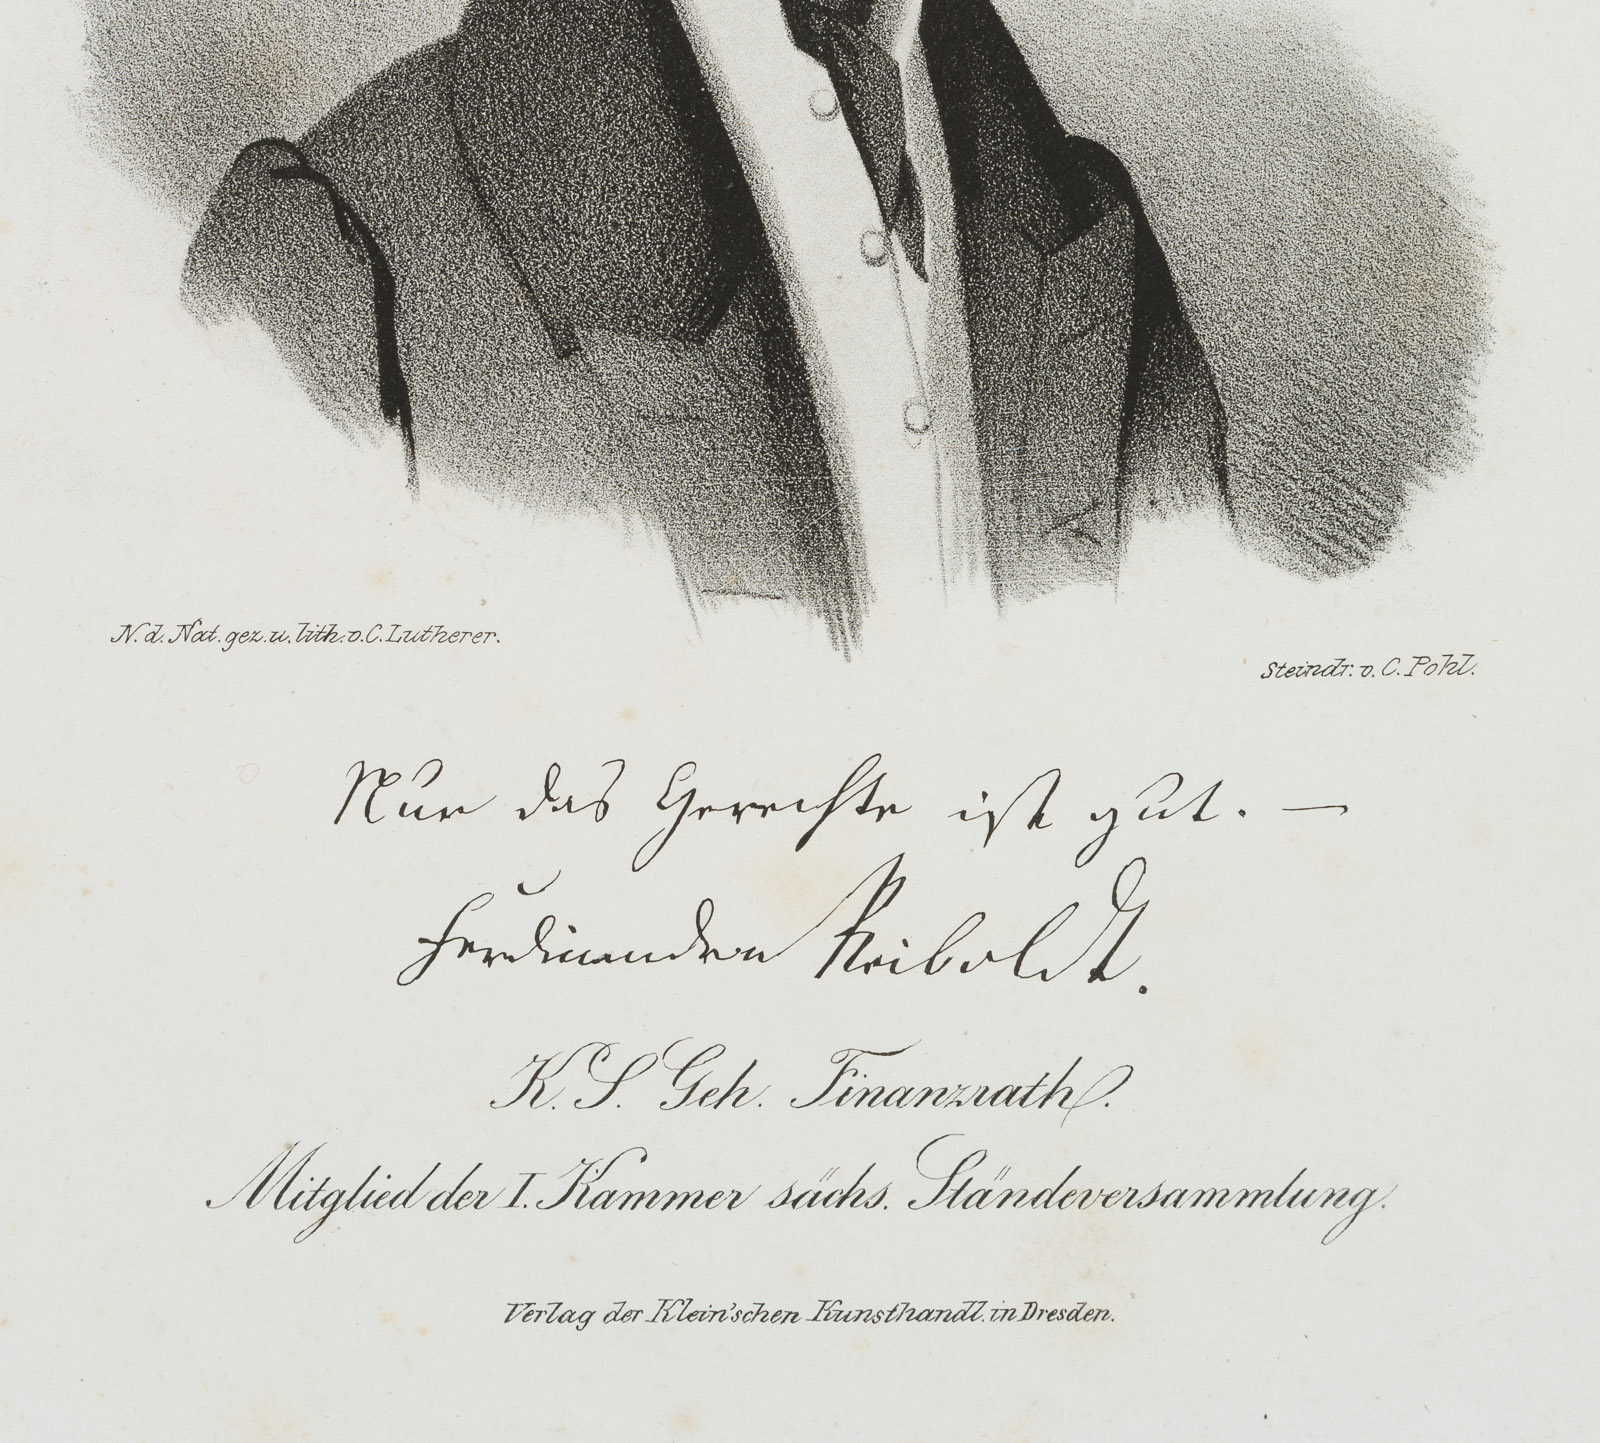 N. d. Nat. gez. u. lith. v. C. Lutherer.
Steindr. v. C. Pohl.
Nur das Gerechte ist gut. —
Ferdinand von Reiboldt.
K. S. Geh. Finanzrath.
Mitglied der I. Kammer sächs. Ständeversammlung.
Verlag der Klein'schen Kunsthandl. in Dresden.